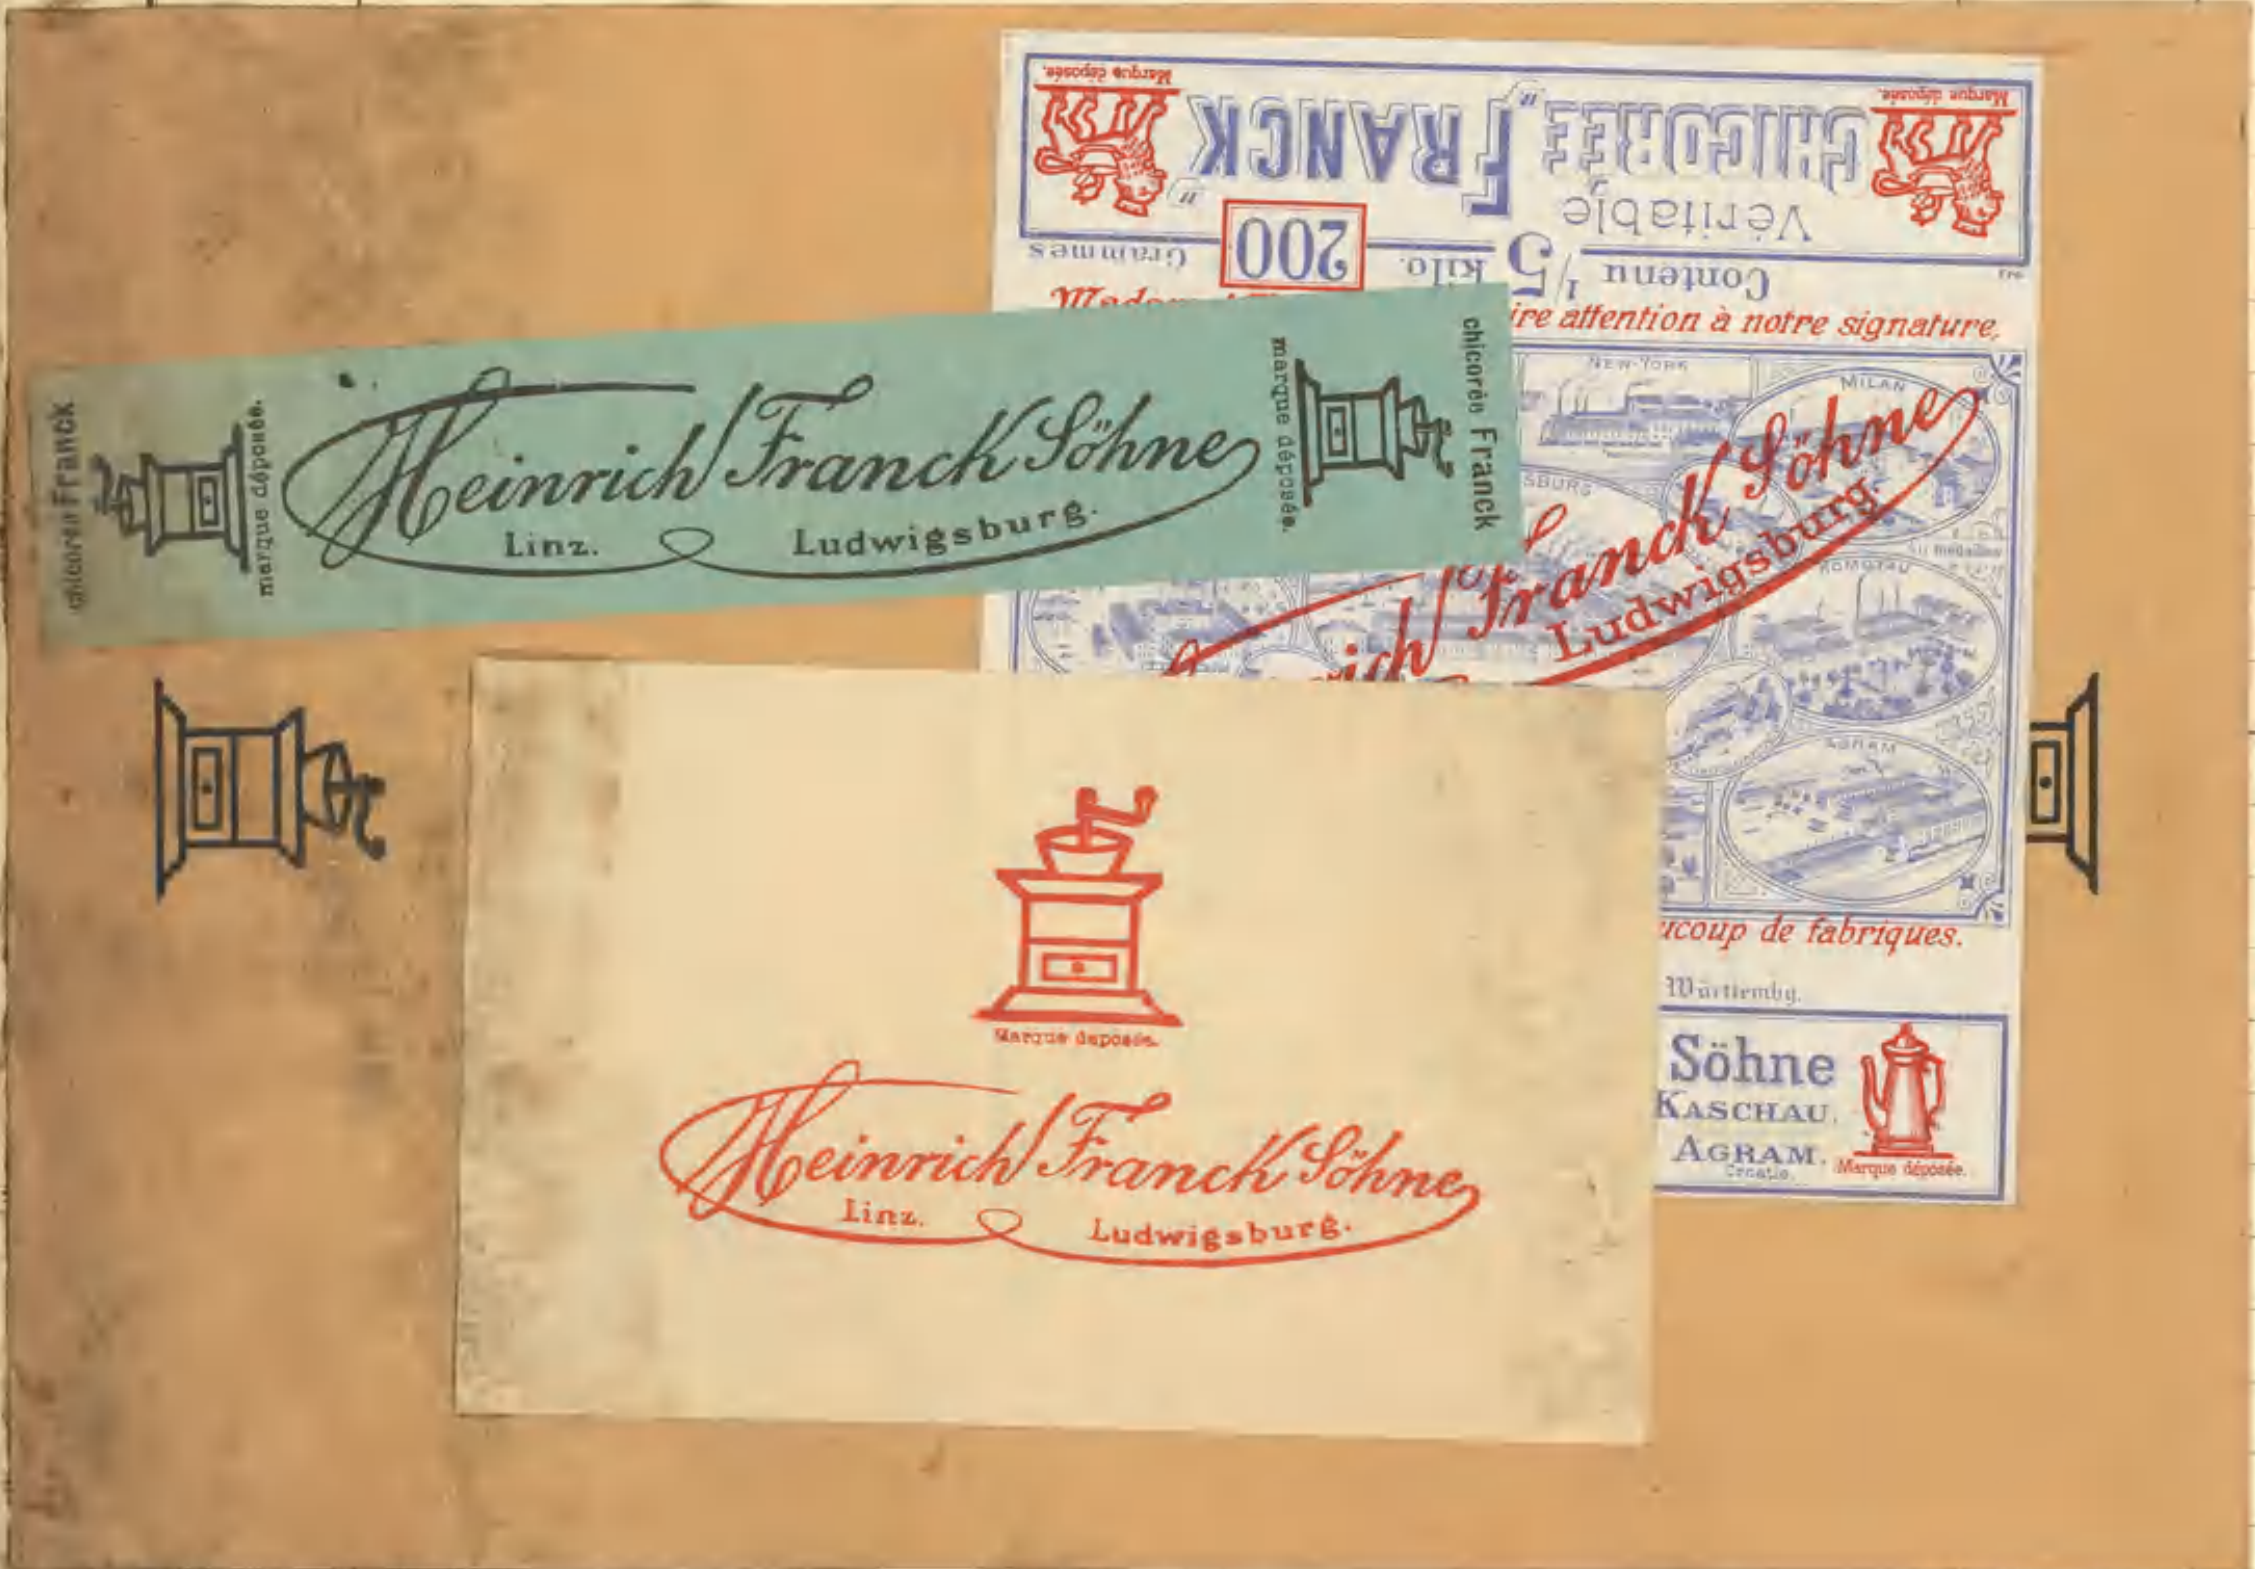 Marque déposée.
Marque déposée.
Véritable
CHICORÉE „FRANCK“
Contenu 1/5 kilo. 200 Grammes
ire attention à notre signature.
NEW-YORK
MILAN
SBURG
KOMOTAU
AGRAM
Franck Söhne
Ludwigsburg
ucoup de fabriques.
Württembg.
Söhne
KASCHAU.
AGRAM.
Croatie.
Marque déposée.
chicorée Franck
marque déposée.
Heinrich Franck Söhne
Linz. Ludwigsburg.
marque déposée.
chicorée Franck
Marque déposée.
Heinrich Franck Söhne
Linz. Ludwigsburg.